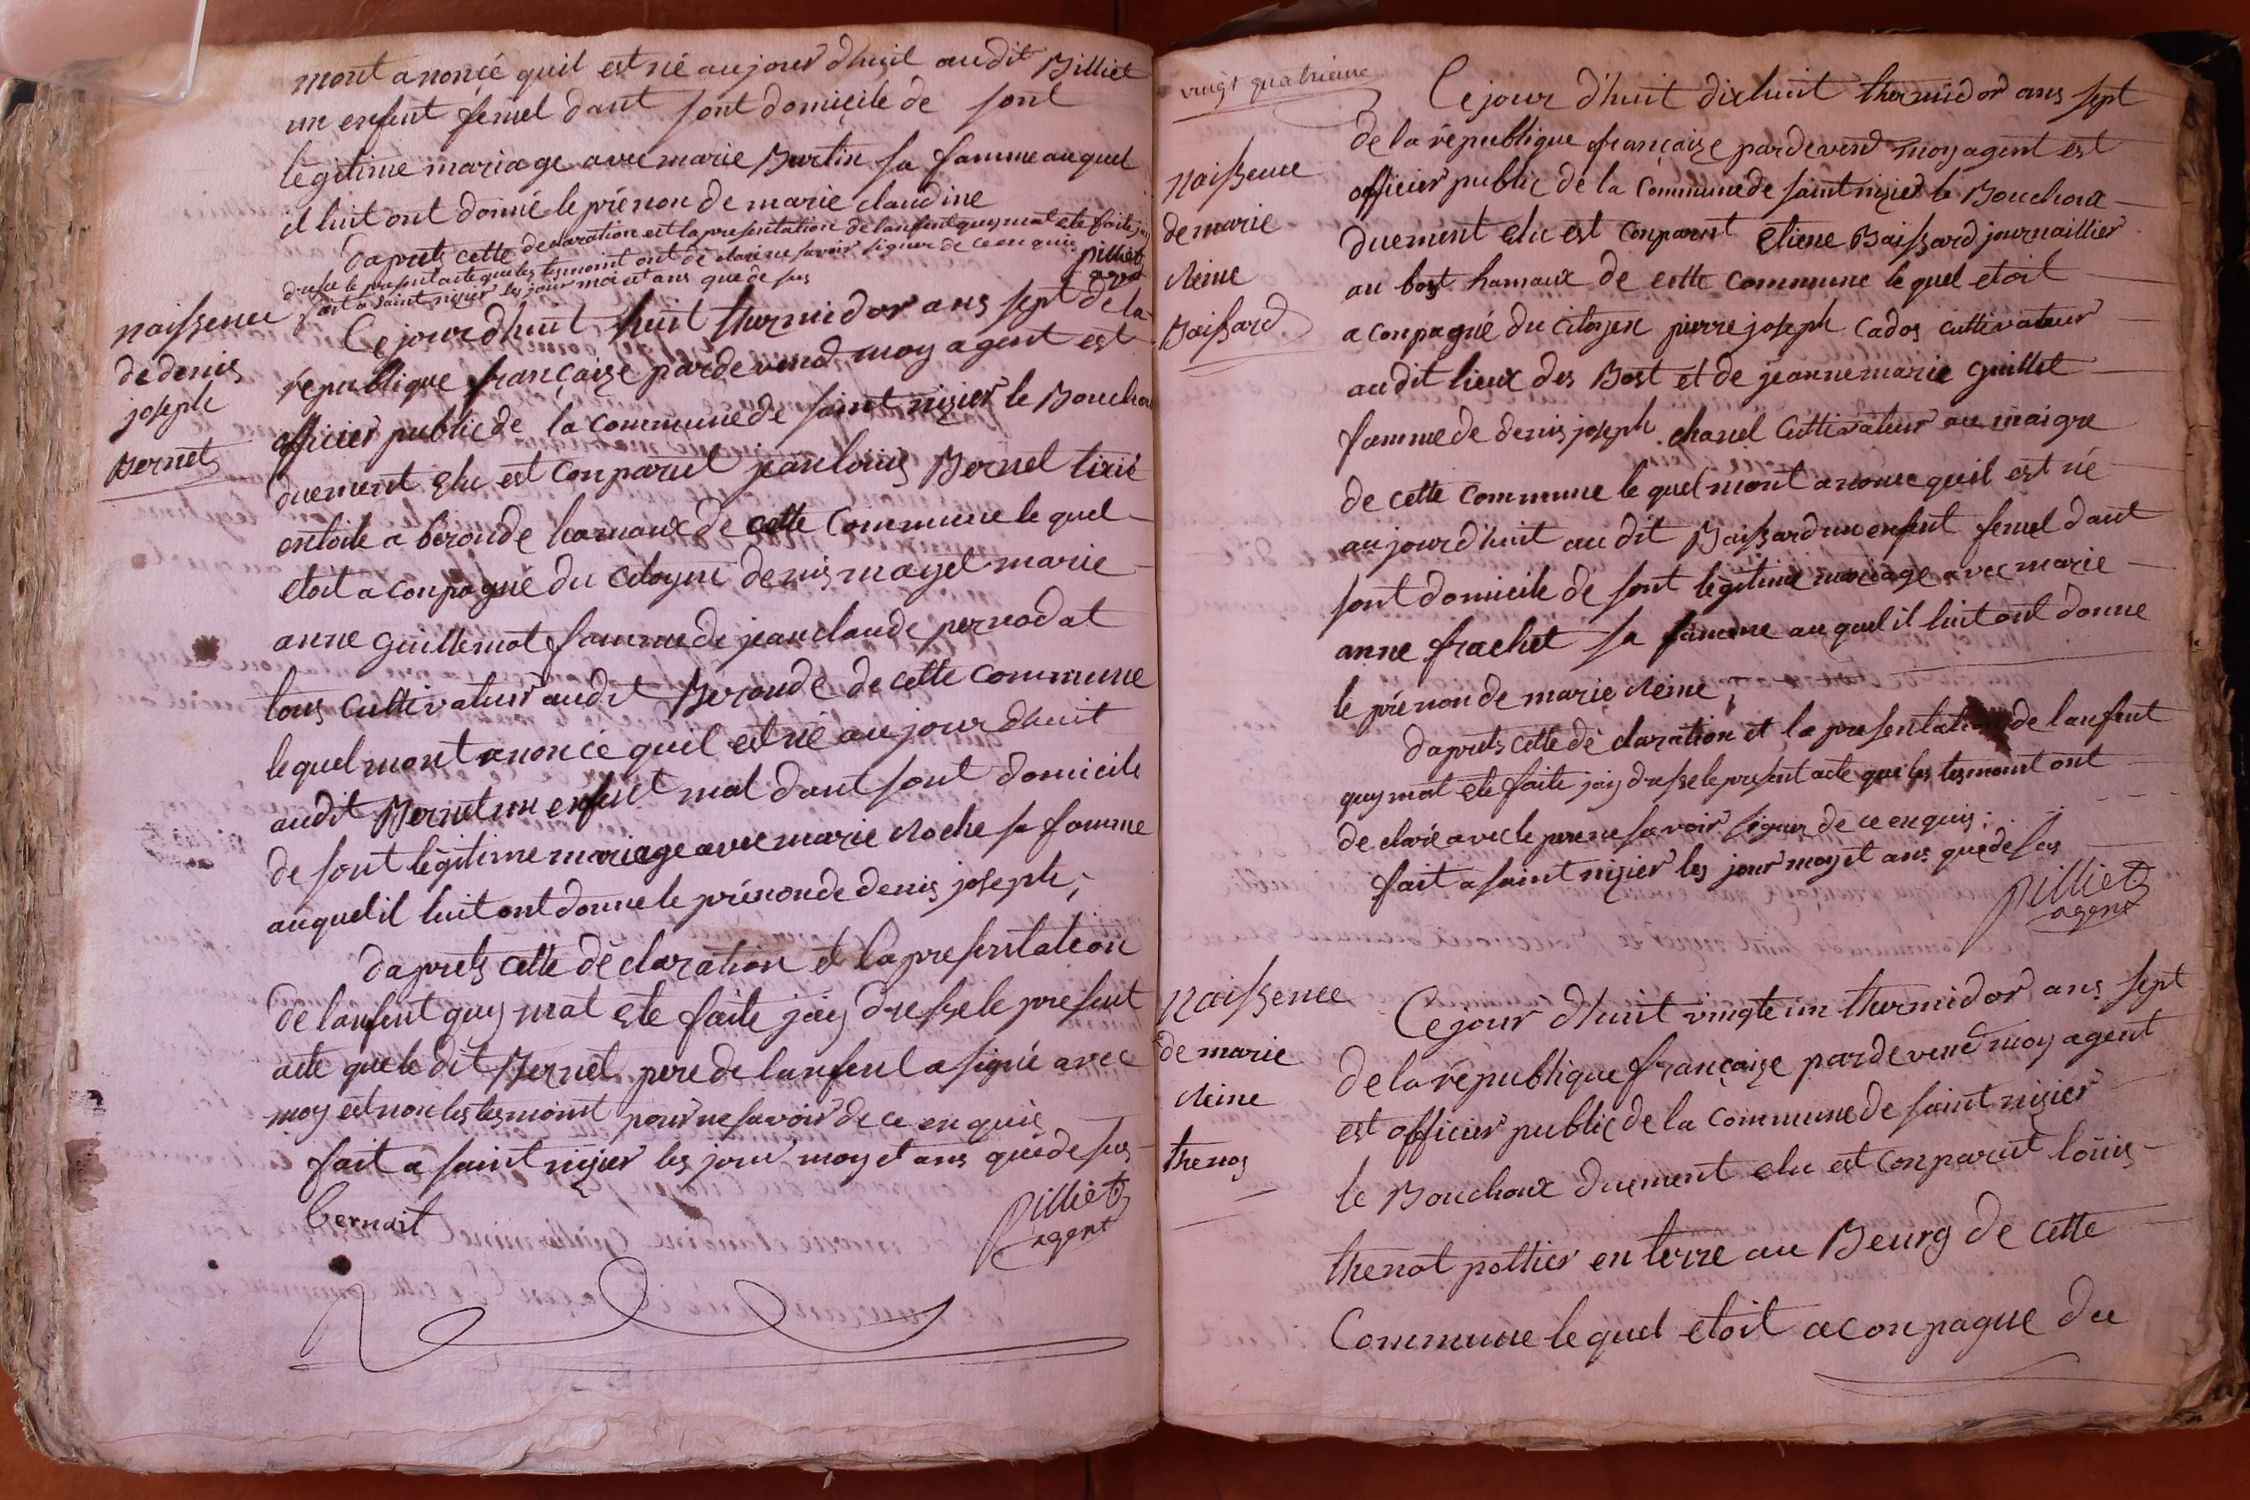 mont anoncé quil est né aujour dhuit audit Billiet
un enfent femel dant sont domicile de sont
légitime mariage avec marie Burtin sa famme auquel
il luit ont donné le prénon de marie claudine
daprets cette declaration est la presentation de lanfent quy mat ete faite jay
dresse le present acte que les tesmoint ont de claré ne savoir signer de ce enquis
fait a saint nizier les jour moi et ans que de sus
pilliet
agent
naissence
de denis
joseph
Bernet
Ce jour dhuit huit thermidor ans sept de la
république françaize pardevend moy agent est
officier public de la commune de saint nizier le Bouchou
duement elu est conparut jean louis Bernet
en toile a beronde hamaux de cette commune le quel
etoit a conpagné du citoyens denis mayet marie
anne guillemot famme de jean claude pernodat
tous cultivateur audit Beronde de cette commune
lequel mont anoncé quil est né aujour dhuit
audit Bernet un enfent mal dant sont domicile
de sont légitime mariage avec marie Roche sa famme
auquel il luit ont donne le prénon de denis joseph;
daprets cette déclaration et la presentation
de lanfent quy mat ete faite jay dresse le present
acte que le dit Bernet pere de lanfent a signé avec
moy est non les tesmoint pour ne savoir de ce enquis
fait a saint nizier les jour moy et ans que de sus
bernait
pilliet
agent
vingt quatrieme
naissence
de marie
Reine
Baissard
Ce jour d'huit dixhuit thermidor ans sept
de la république françaize pardevend moy agent est
officier public de la commune de saint nizier le Bouchoux
duement elu est conparut etiene Baissard journaillier
au bost hamaux de cette commune le quel etoit
a conpagné du citoyen pierre joseph Cados cultivateur
audit lieux des Bost et de jeanne marie guillet
famme de denis joseph chanel cultivateur au maigre
de cette commune le quel mont anonce quil est né
aujourd'huit audit Baissard un enfent femel dant
sont domicile de sont légitime mariage avec marie
anne frachet sa famme auquel il luit ont donne
le prénon de marie Reine;
daprets cette dé claration et la presentation de lanfent
quy mat ete faite jay dresse le present acte que les tesmoint ont
de claré avec le pere ne savoir signer de ce enquis;
fait a saint nizier les jour moy et ans que de sus
pilliet
agent
naissence
de marie
Reine
thenos
Ce jour d'huit vingte un thermidor ans sept
de la république françaize par de vend moy agent
est officier public de la commune de saint nizier
le Bouchoux duement elu est conparut louis
thenot pottier en terre au Beurg de cette
Commune le quel etoit a conpagne du